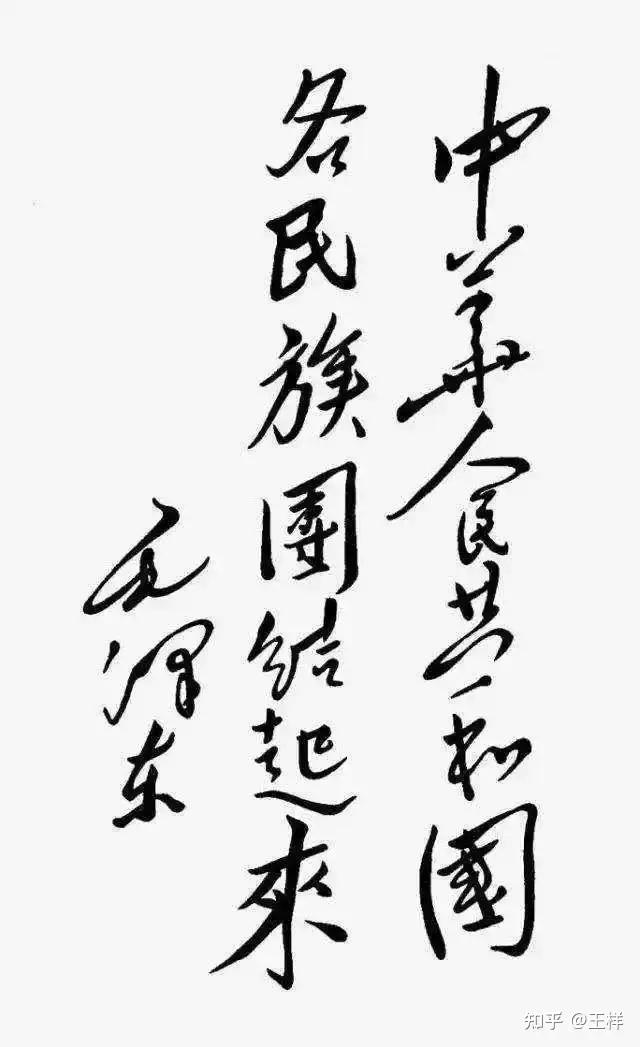 中华人民共和國
各民族團结起來
毛泽东
知乎 @王样